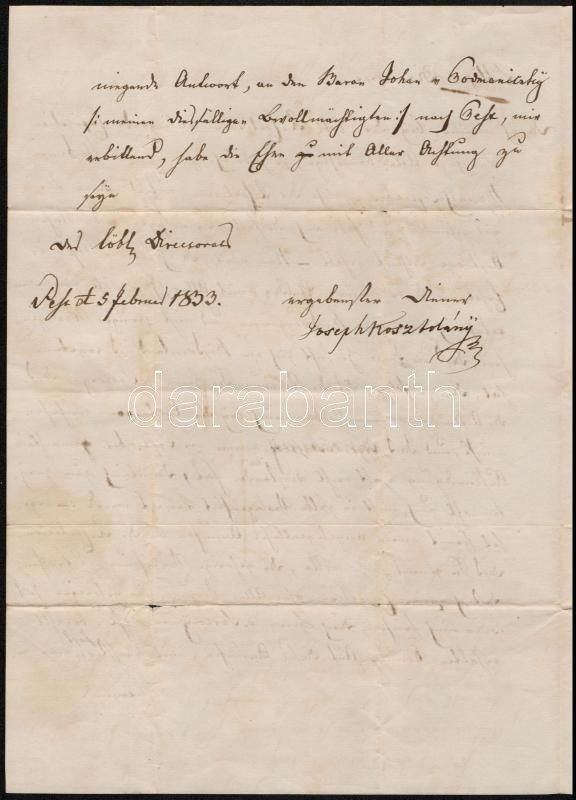 niegende Antwort, an den Baron Johan v Podmaniczky
/: meinen diesfälligen Bevollmächtigten :/ nach Pest, mir
erbittend, habe die Ehre mit Aller Achtung zu
seyn
des löbl Directorats
Pest dt 5 Februar 1833.
ergebenster Diener
Joseph Kosztolány
darabanth